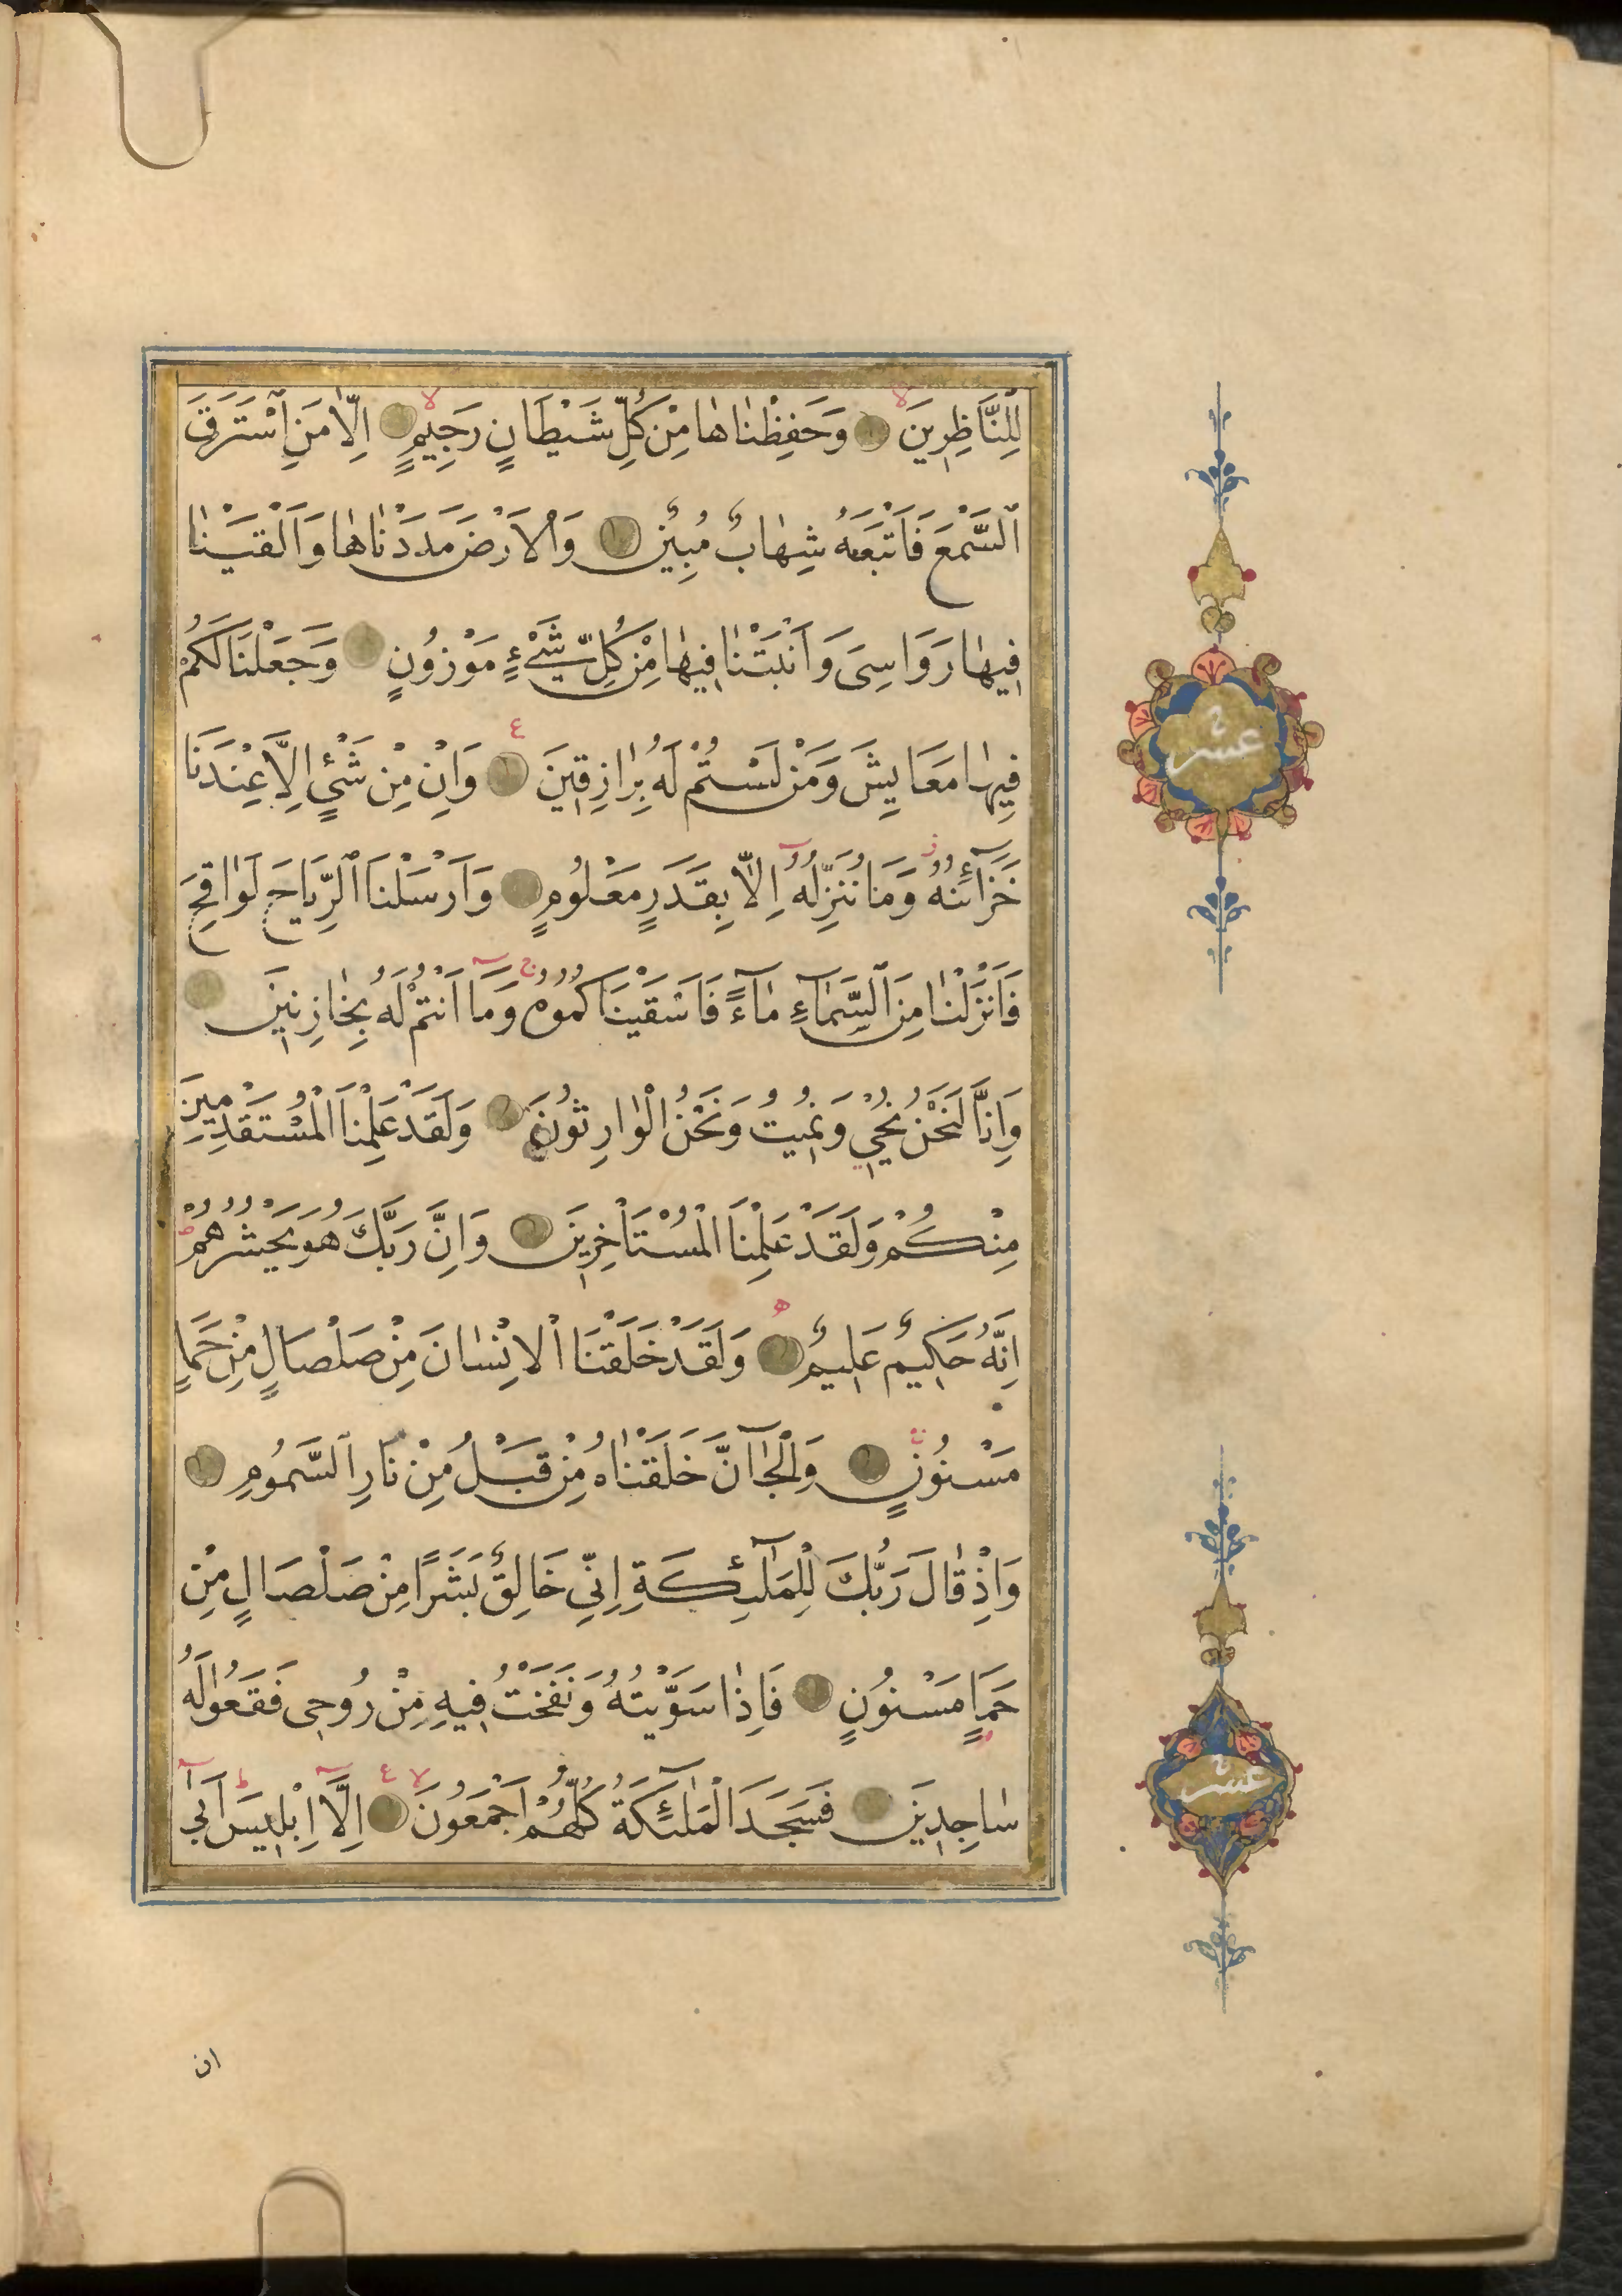 لِلنَّاظِرِينَ وَحَفِظْنَاهَا مِنْ كُلِّ شَيْطَانٍ رَجِيمٍ اِلَّا مَنِ اسْتَرَقَ
السَّمْعَ فَاَتْبَعَهُ شِهَابٌ مُبِينٌ وَالْاَرْضَ مَدَدْنَاهَا وَاَلْقَيْنَا
فِيهَا رَوَاسِيَ وَاَنْبَتْنَا فِيهَا مِنْ كُلِّ شَيْءٍ مَوْزُونٍ وَجَعَلْنَا لَكُمْ
فِيهَا مَعَايِشَ وَمَنْ لَسْتُمْ لَهُ بِرَازِقِينَ وَاِنْ مِنْ شَيْءٍ اِلَّا عِنْدَنَا
خَزَآئِنُهُ وَمَا نُنَزِّلُهُ اِلَّا بِقَدَرٍ مَعْلُومٍ وَاَرْسَلْنَا الرِّيَاحَ لَوَاقِحَ
فَاَنْزَلْنَا مِنَ السَّمَآءِ مَآءً فَاَسْقَيْنَاكُمُوهُ وَمَا اَنْتُمْ لَهُ بِخَازِنِينَ
وَاِنَّا لَنَحْنُ نُحْيِي وَنُمِيتُ وَنَحْنُ الْوَارِثُونَ وَلَقَدْ عَلِمْنَا الْمُسْتَقْدِمِينَ
مِنْكُمْ وَلَقَدْ عَلِمْنَا الْمُسْتَاْخِرِينَ وَاِنَّ رَبَّكَ هُوَ يَحْشُرُهُمْ
اِنَّهُ حَكِيمٌ عَلِيمٌ وَلَقَدْ خَلَقْنَا الْاِنْسَانَ مِنْ صَلْصَالٍ مِنْ حَمَاٍ
مَسْنُونٍ وَالْجَآنَّ خَلَقْنَاهُ مِنْ قَبْلُ مِنْ نَارِ السَّمُومِ
وَاِذْ قَالَ رَبُّكَ لِلْمَلٰٓئِكَةِ اِنِّي خَالِقٌ بَشَرًا مِنْ صَلْصَالٍ مِنْ
حَمَاٍ مَسْنُونٍ فَاِذَا سَوَّيْتُهُ وَنَفَخْتُ فِيهِ مِنْ رُوحِي فَقَعُوا لَهُ
سَاجِدِينَ فَسَجَدَ الْمَلٰٓئِكَةُ كُلُّهُمْ اَجْمَعُونَ اِلَّا اِبْلِيسَ اَبٰى
ان
عشر
عشر